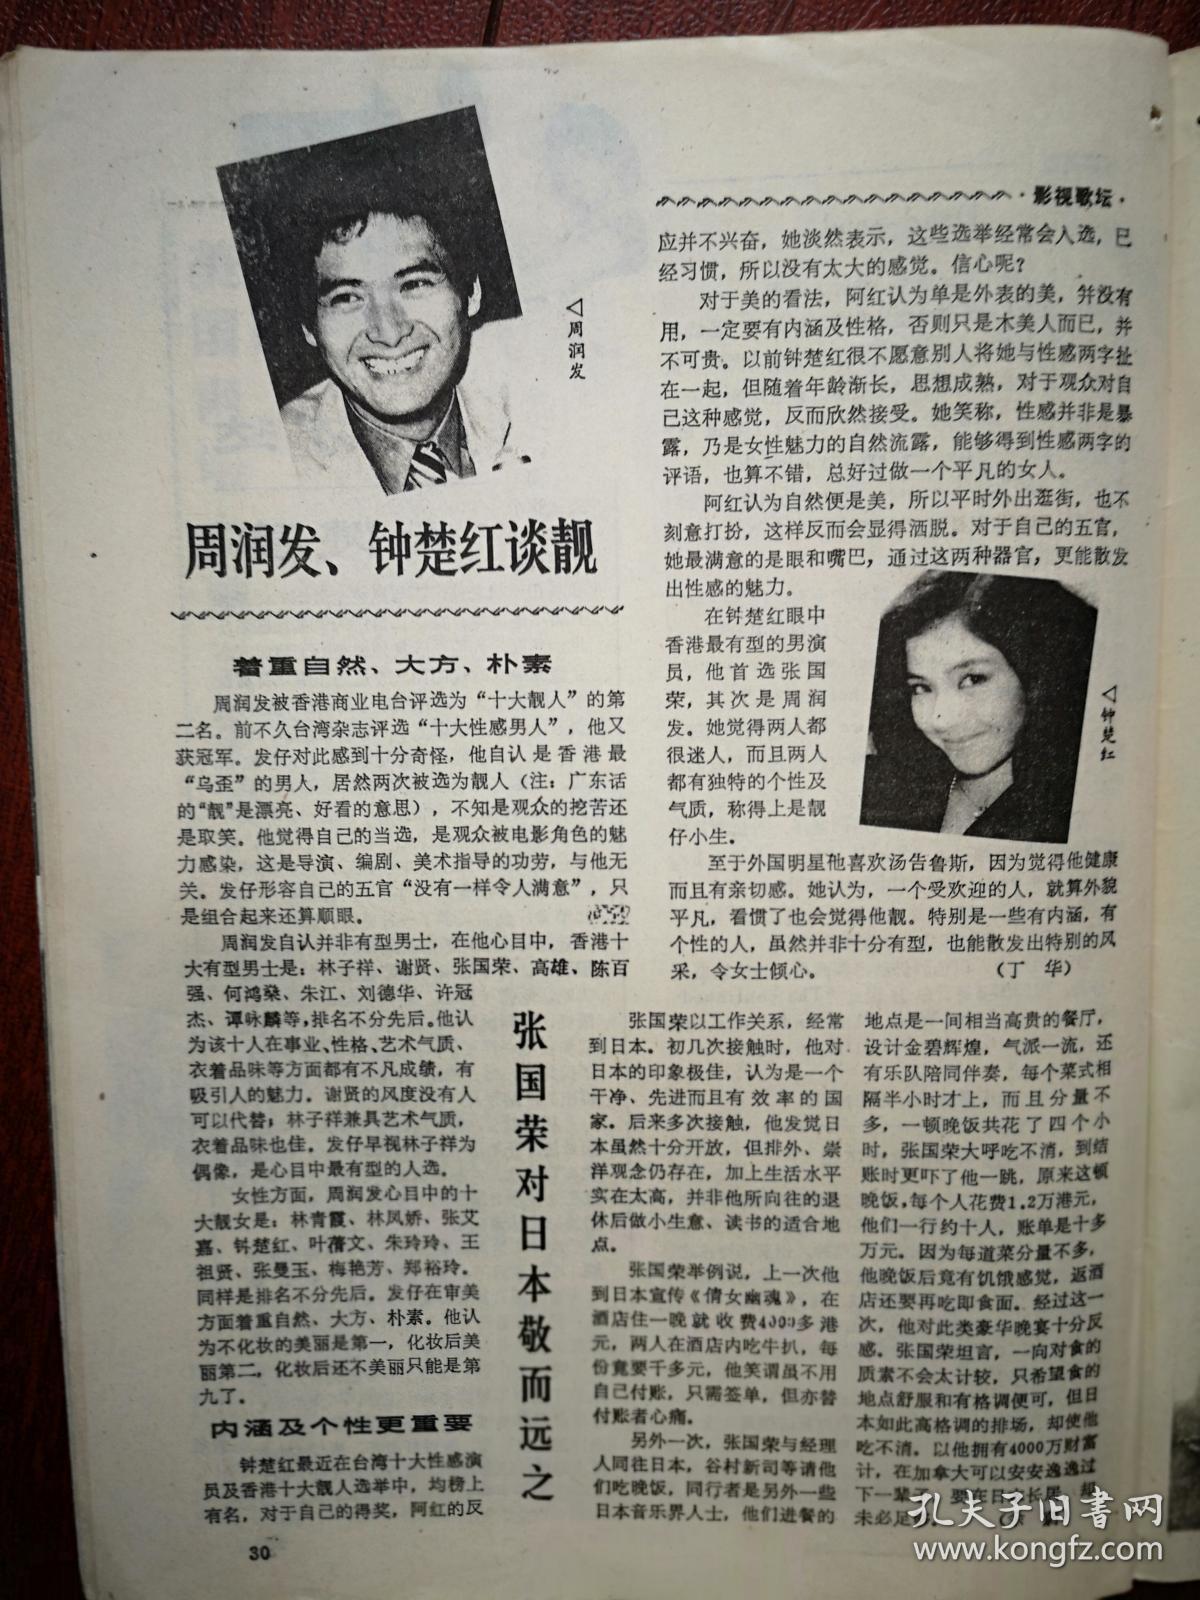 ·影视歌坛·
◁周润发
周润发、钟楚红谈靓
着重自然、大方、朴素
周润发被香港商业电台评选为“十大靓人”的第
二名。前不久台湾杂志评选“十大性感男人”，他又
获冠军。发仔对此感到十分奇怪，他自认是香港最
“乌歪”的男人，居然两次被选为靓人（注：广东话
的“靓”是漂亮、好看的意思），不知是观众的挖苦还
是取笑。他觉得自己的当选，是观众被电影角色的魅
力感染，这是导演、编剧、美术指导的功劳，与他无
关。发仔形容自己的五官“没有一样令人满意”，只
是组合起来还算顺眼。
周润发自认并非有型男士，在他心目中，香港十
大有型男士是：林子祥、谢贤、张国荣、高雄、陈百
强、何鸿燊、朱江、刘德华、许冠
杰、谭咏麟等，排名不分先后。他认
为该十人在事业、性格、艺术气质、
衣着品味等方面都有不凡成绩，有
吸引人的魅力。谢贤的风度没有人
可以代替；林子祥兼具艺术气质，
衣着品味也佳。发仔早视林子祥为
偶像，是心目中最有型的人选。
女性方面，周润发心目中的十
大靓女是：林青霞、林凤娇、张艾
嘉、钟楚红、叶蒨文、朱玲玲、王
祖贤、张曼玉、梅艳芳、郑裕玲。
同样是排名不分先后。发仔在审美
方面着重自然、大方、朴素。他认
为不化妆的美丽是第一，化妆后美
丽第二，化妆后还不美丽只能是第
九了。
内涵及个性更重要
钟楚红最近在台湾十大性感演
员及香港十大靓人选举中，均榜上
有名，对于自己的得奖，阿红的反
应并不兴奋，她淡然表示，这些选举经常会入选，已
经习惯，所以没有太大的感觉。信心呢？
对于美的看法，阿红认为单是外表的美，并没有
用，一定要有内涵及性格，否则只是木美人而已，并
不可贵。以前钟楚红很不愿意别人将她与性感两字扯
在一起，但随着年龄渐长，思想成熟，对于观众对自
己这种感觉，反而欣然接受。她笑称，性感并非是暴
露，乃是女性魅力的自然流露，能够得到性感两字的
评语，也算不错，总好过做一个平凡的女人。
阿红认为自然便是美，所以平时外出逛街，也不
刻意打扮，这样反而会显得洒脱。对于自己的五官，
她最满意的是眼和嘴巴，通过这两种器官，更能散发
出性感的魅力。
在钟楚红眼中
香港最有型的男演
员，他首选张国
荣，其次是周润
发。她觉得两人都
很迷人，而且两人
都有独特的个性及
气质，称得上是靓
仔小生。
◁钟楚红
至于外国明星他喜欢汤告鲁斯，因为觉得他健康
而且有亲切感。她认为，一个受欢迎的人，就算外貌
平凡，看惯了也会觉得他靓。特别是一些有内涵，有
个性的人，虽然并非十分有型，也能散发出特别的风
采，令女士倾心。（丁 华）
张国荣对日本敬而远之
张国荣以工作关系，经常
到日本。初几次接触时，他对
日本的印象极佳，认为是一个
干净、先进而且有效率的国
家。后来多次接触，他发觉日
本虽然十分开放，但排外、崇
洋观念仍存在，加上生活水平
实在太高，并非他所向往的退
休后做小生意、读书的适合地
点。
张国荣举例说，上一次他
到日本宣传《倩女幽魂》，在
酒店住一晚就收费4000多港
元，两人在酒店内吃牛扒，每
份竟要千多元，他笑谓虽不用
自己付账，只需签单，但亦替
付账者心痛。
另外一次，张国荣与经理
人同往日本，谷村新司等请他
们吃晚饭，同行者是另外一些
日本音乐界人士，他们进餐的
地点是一间相当高贵的餐厅，
设计金碧辉煌，气派一流，还
有乐队陪同伴奏，每个菜式相
隔半小时才上，而且分量不
多，一顿晚饭共花了四个小
时，张国荣大呼吃不消，到结
账时更吓了他一跳，原来这顿
晚饭，每个人花费1.2万港元，
他们一行约十人，账单是十多
万元。因为每道菜分量不多，
他晚饭后竟有饥饿感觉，返酒
店还要再吃即食面。经过这一
次，他对此类豪华晚宴十分反
感。张国荣坦言，一向对食的
质素不会太计较，只希望食的
地点舒服和有格调便可，但日
本如此高格调的排场，却使他
吃不消。以他拥有4000万财富
计，在加拿大可以安安逸逸过
下一辈子，要在日本长居，却
未必足
30
孔夫子旧书网
www.kongfz.com